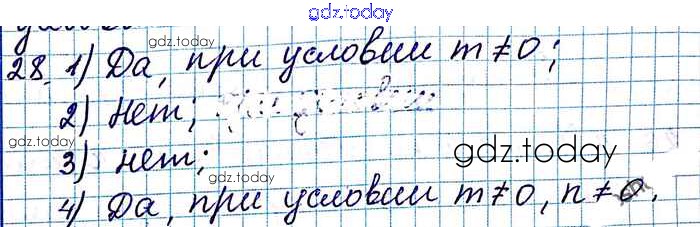 gdz.today
28. 1) Да, при условии m ≠ 0;
gdz.today
2) Нет;
gdz.today
gdz.today
3) нет;
gdz.today
4) Да, при условии m ≠ 0, n ≠ 0.